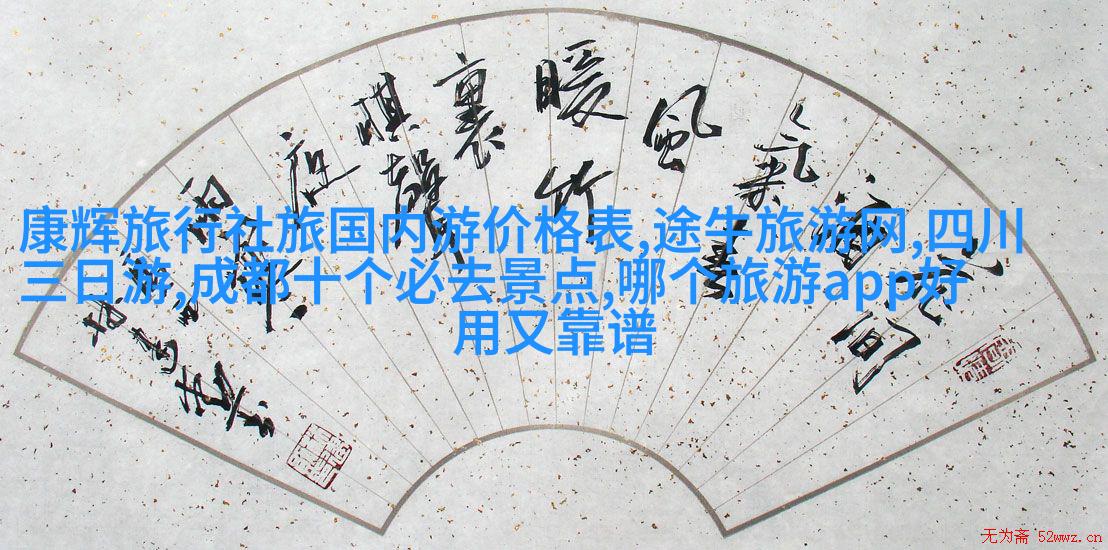 花間
酒
氣春
風
暖竹
裏
棋聲
夜
雨寒
康辉旅行社旅国内游价格表,途牛旅游网,四川
三日游,成都十个必去景点,哪个旅游app好
用又靠谱
无为斋 52wwz.cn